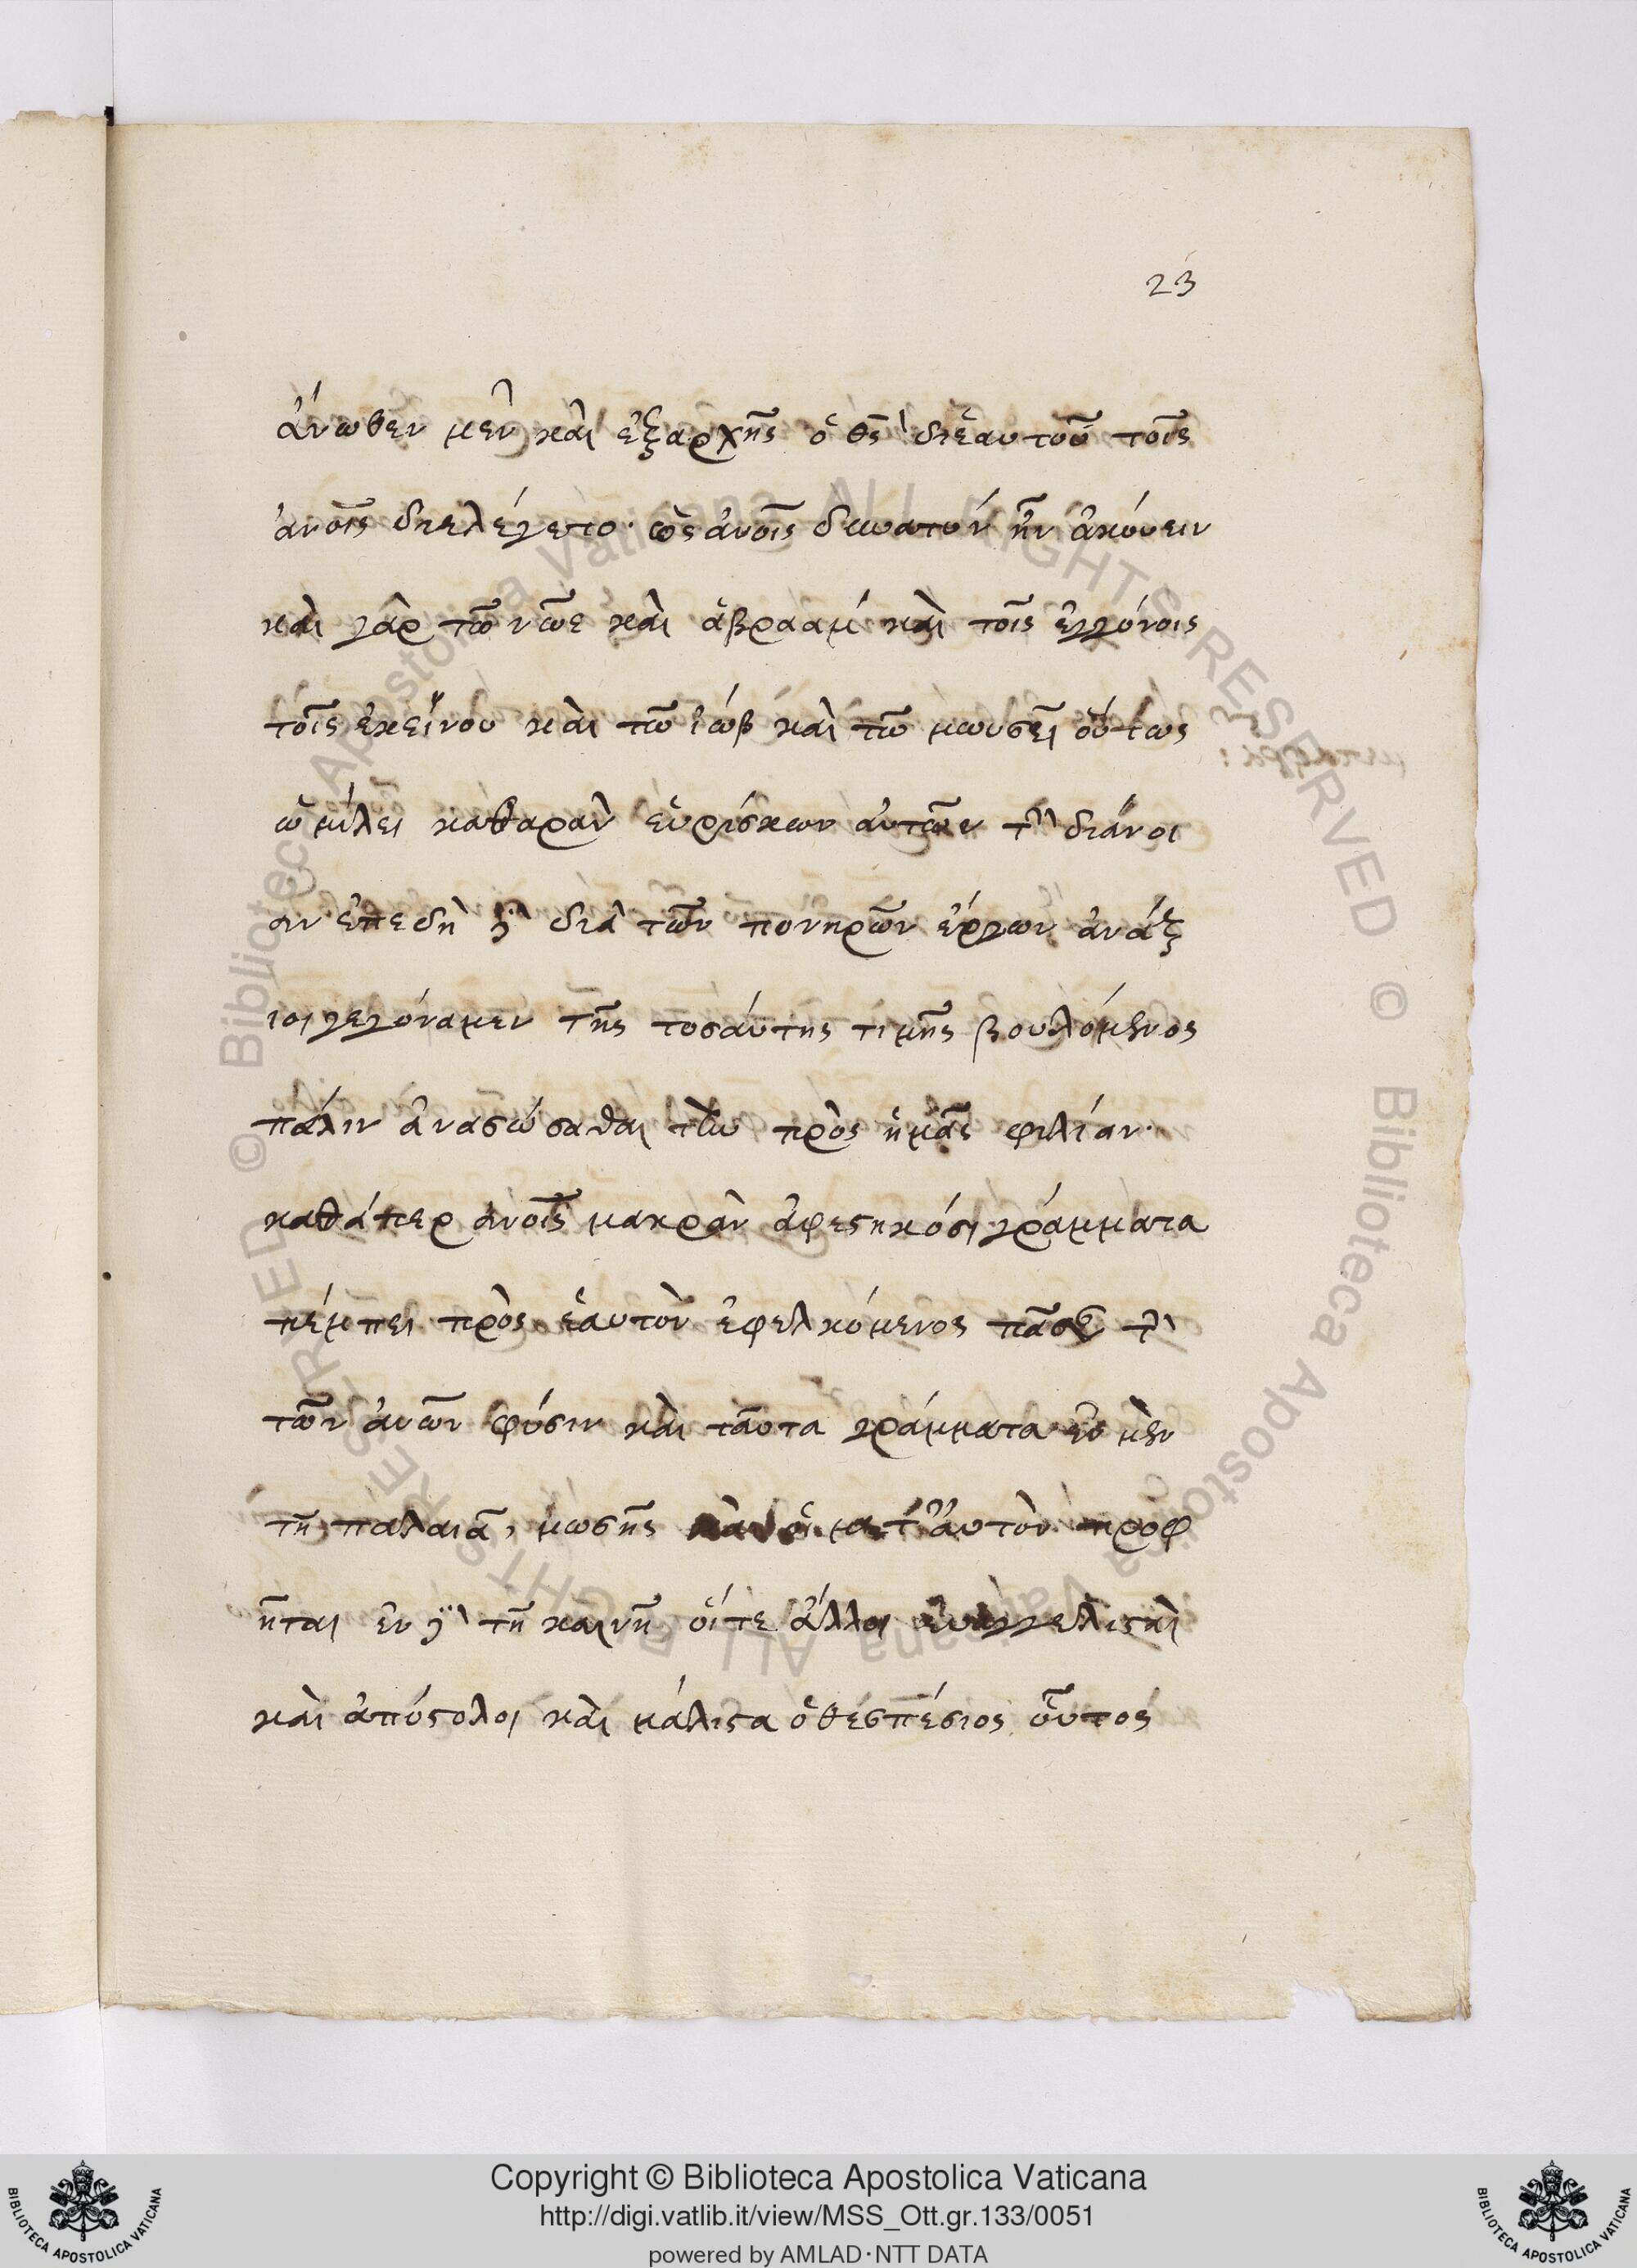 23
ἄνωθεν μὲν καὶ ἐξαρχῆς ὁ θς διἑαυτοῦ τοῖς
ἀνοις διελέγετο· ὡς ἀνοις δυνατὸν ἦν ἀκούειν
καὶ γὰρ τῶ νῶε καὶ ἀβραὰμ καὶ τοῖς ἐγγόνοις
τοῖς ἐκείνου καὶ τῶ ἰὼβ καὶ τῶ μωυσεῖ οὕτως
ὡμίλει καθαρὰν εὑρίσκων αὐτῶν τὴν διάνοι
αν· ἐπεδὴ δὲ διὰ τῶν πονηρῶν ἔργων ἀνάξ
ιοι γεγόναμεν τῆς τοσαύτης τιμῆς βουλόμενος
πάλιν ἀνασώσαθαι τὴν πρὸς ἡμᾶς φιλίαν·
καθάπερ ἀνοις μακρὰν ἀφεστηκόσι γράμματα
πέμπει πρὸς ἑαυτὸν ἐφελκόμενος πᾶσαν τὴν
τῶν ἀνων φύσιν καὶ ταῦτα γράμματα ἐν μὲν
τῆ παλαιᾶ, μωσῆς καὶ οἱ κατ' αὐτὸν προφ
ῆται ἐν δὲ τῆ καινῆ, οἵτε ἄλλοι εὐαγγελισταὶ
καὶ ἀπόστολοι καὶ μάλιστα ὁ θεσπέσιος οὗτος
Copyright © Biblioteca Apostolica Vaticana
http://digi.vatlib.it/view/MSS_Ott.gr.133/0051
powered by AMLAD·NTT DATA
BIBLIOTECA APOSTOLICA VATICANA
BIBLIOTECA APOSTOLICA VATICANA
© Biblioteca Apostolica Vaticana ALL RIGHTS RESERVED
© Biblioteca Apostolica Vaticana ALL RIGHTS RESERVED